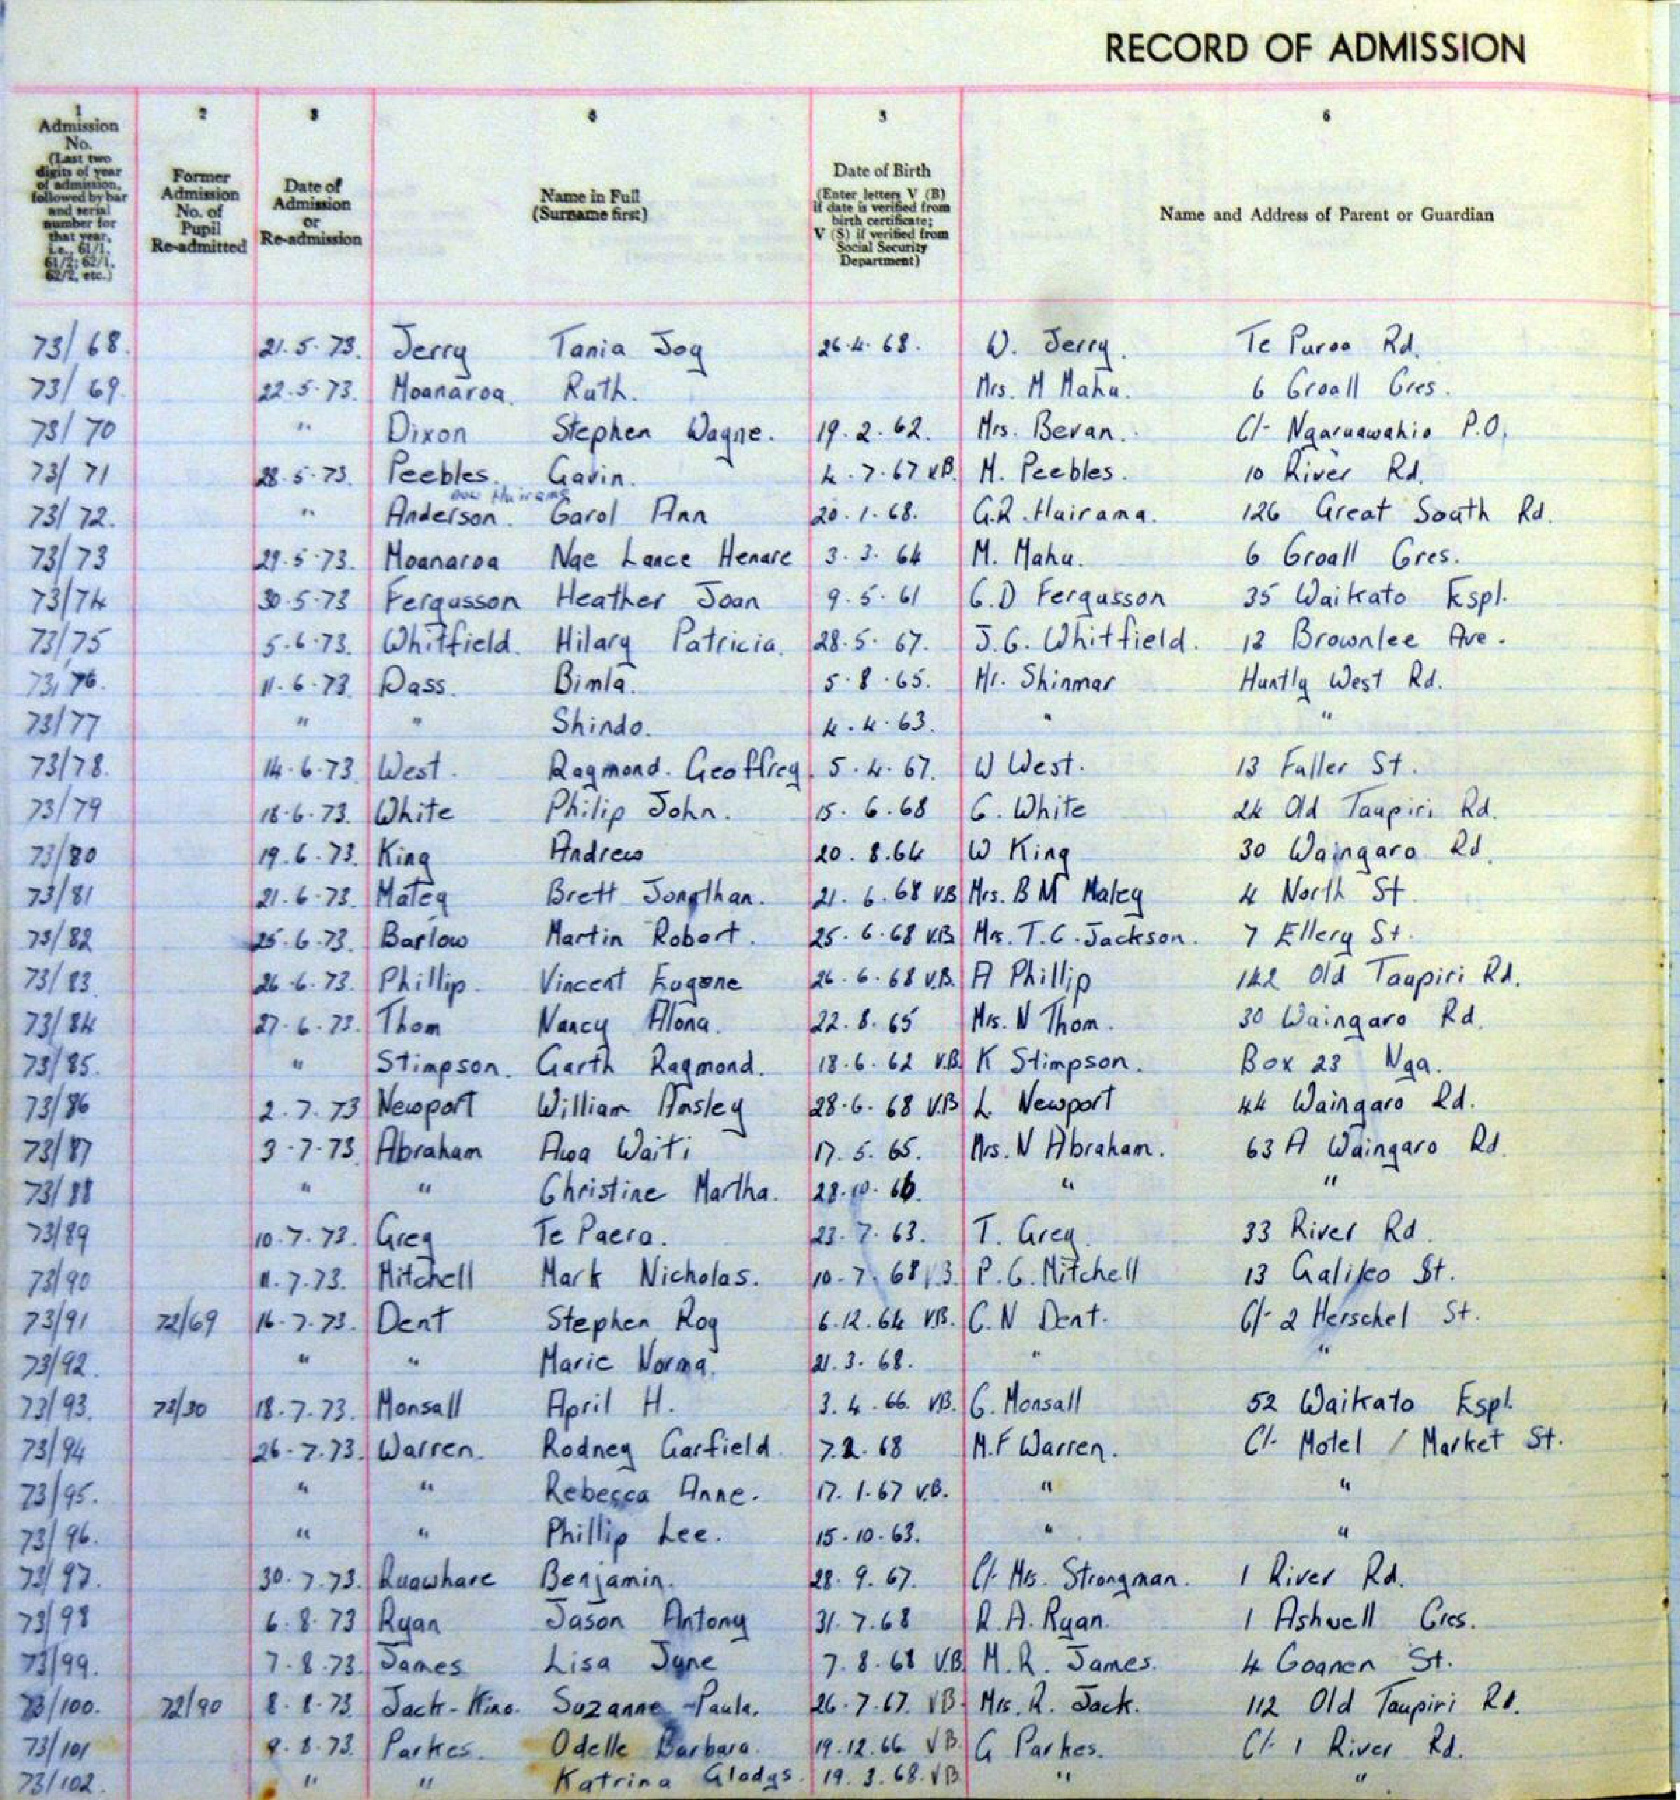 RECORD OF ADMISSION
1 2 3 4 5 6
Admission No. (Last two digits of year of admission, followed by bar and serial number for that year, i.e., 61/1, 61/2; 62/1, 62/2, etc.)
Former Admission No. of Pupil Re-admitted
Date of Admission or Re-admission
Name in Full (Surname first)
Date of Birth (Enter letters V (B) if date is verified from birth certificate; V (S) if verified from Social Security Department)
Name and Address of Parent or Guardian
73/68. 21.5.73. Jerry Tania Joy 26.4.68. W. Jerry. Te Puroa Rd.
73/69 22.5.73. Moanaroa. Ruth. Mrs. M Mahu. 6 Croall Cres.
73/70 " Dixon Stephen Wayne. 19.2.62. Mrs. Bevan. C/- Ngaruawahia P.O.
73/71 28.5.73. Peebles. Gavin. 4.7.67 V.B. M. Peebles. 10 River Rd.
now Huirama
73/72. " Anderson. Carol Ann 20.1.68. G.R. Huirama. 126 Great South Rd.
73/73 29.5.73. Moanaroa Nae Lance Henare 3.3.64 M. Mahu. 6 Croall Cres.
73/74 30.5.73 Fergusson Heather Joan 9.5.61 G.D Fergusson 35 Waikato Espl.
73/75 5.6.73. Whitfield. Hilary Patricia. 28.5.67. J.G. Whitfield. 12 Brownlee Ave.
73/76. 11.6.73 Dass. Bimla. 5.8.65. Mr. Shinmar Huntly West Rd.
73/77 " " Shindo. 4.4.63. " "
73/78. 14.6.73 West. Raymond. Geoffrey. 5.4.67. W West. 13 Fuller St.
73/79 18.6.73. White Philip John. 15.6.68 G. White 24 Old Taupiri Rd.
73/80 19.6.73. King Andrew 20.8.64 W King 30 Waingaro Rd.
73/81 21.6.73. Maley Brett Jonathan. 21.6.68 V.B Mrs. B M Maley 4 North St
73/82 25.6.73. Barlow Martin Robert. 25.6.68 V.B Mrs. T.C. Jackson. 7 Ellery St.
73/83. 26.6.73. Phillip. Vincent Eugene 26.6.68 V.B. A Phillip 142 Old Taupiri Rd.
73/84 27.6.73. Thom Nancy Alona. 22.8.65 Mrs. N Thom. 30 Waingaro Rd.
73/85. " Stimpson. Garth Raymond. 18.6.62 V.B. K Stimpson. Box 23 Nga.
73/86 2.7.73 Newport William Ansley 28.6.68 V.B L. Newport 44 Waingaro Rd.
73/87 3.7.73 Abraham Awa Waiti 17.5.65. Mrs. N Abraham. 63 A Waingaro Rd.
73/88 " " Christine Martha. 28.10.66. " "
73/89 10.7.73. Grey Te Paera. 23.7.63. T. Grey. 33 River Rd.
73/90 11.7.73. Mitchell Mark Nicholas. 10.7.68 P.G. Mitchell 13 Galileo St.
73/91 72/69 16.7.73. Dent Stephen Roy 6.12.64 V.B. C.N Dent. C/- 2 Herschel St.
73/92. " " Marie Norma. 21.3.68. " "
73/93. 73/30 18.7.73. Monsall April H. 3.4.66. V.B. G. Monsall 52 Waikato Espl.
73/94 26.7.73. Warren. Rodney Garfield 7.2.68 M.F Warren. C/- Motel / Market St.
73/95. " " Rebecca Anne. 17.1.67 V.B. " "
73/96. " " Phillip Lee. 15.10.63. " "
73/97. 30.7.73. Ruawhare Benjamin. 28.9.67. C/- Mrs. Strongman. 1 River Rd.
73/98 6.8.73 Ryan Jason Antony 31.7.68 R.A. Ryan. 1 Ashwell Cres.
73/99. 7.8.73. James Lisa Jyne 7.8.68 V.B. M.R. James. 4 Goanen St.
73/100. 72/90 8.8.73 Jack-King. Suzanne Paula. 26.7.67. V.B. Mrs. R. Jack. 112 Old Taupiri Rd.
73/101 9.8.73. Parkes. Odelle Barbara. 19.12.66 V.B. G Parkes. C/- 1 River Rd.
73/102. " " Katrina Gladys. 19.3.68. V.B " "